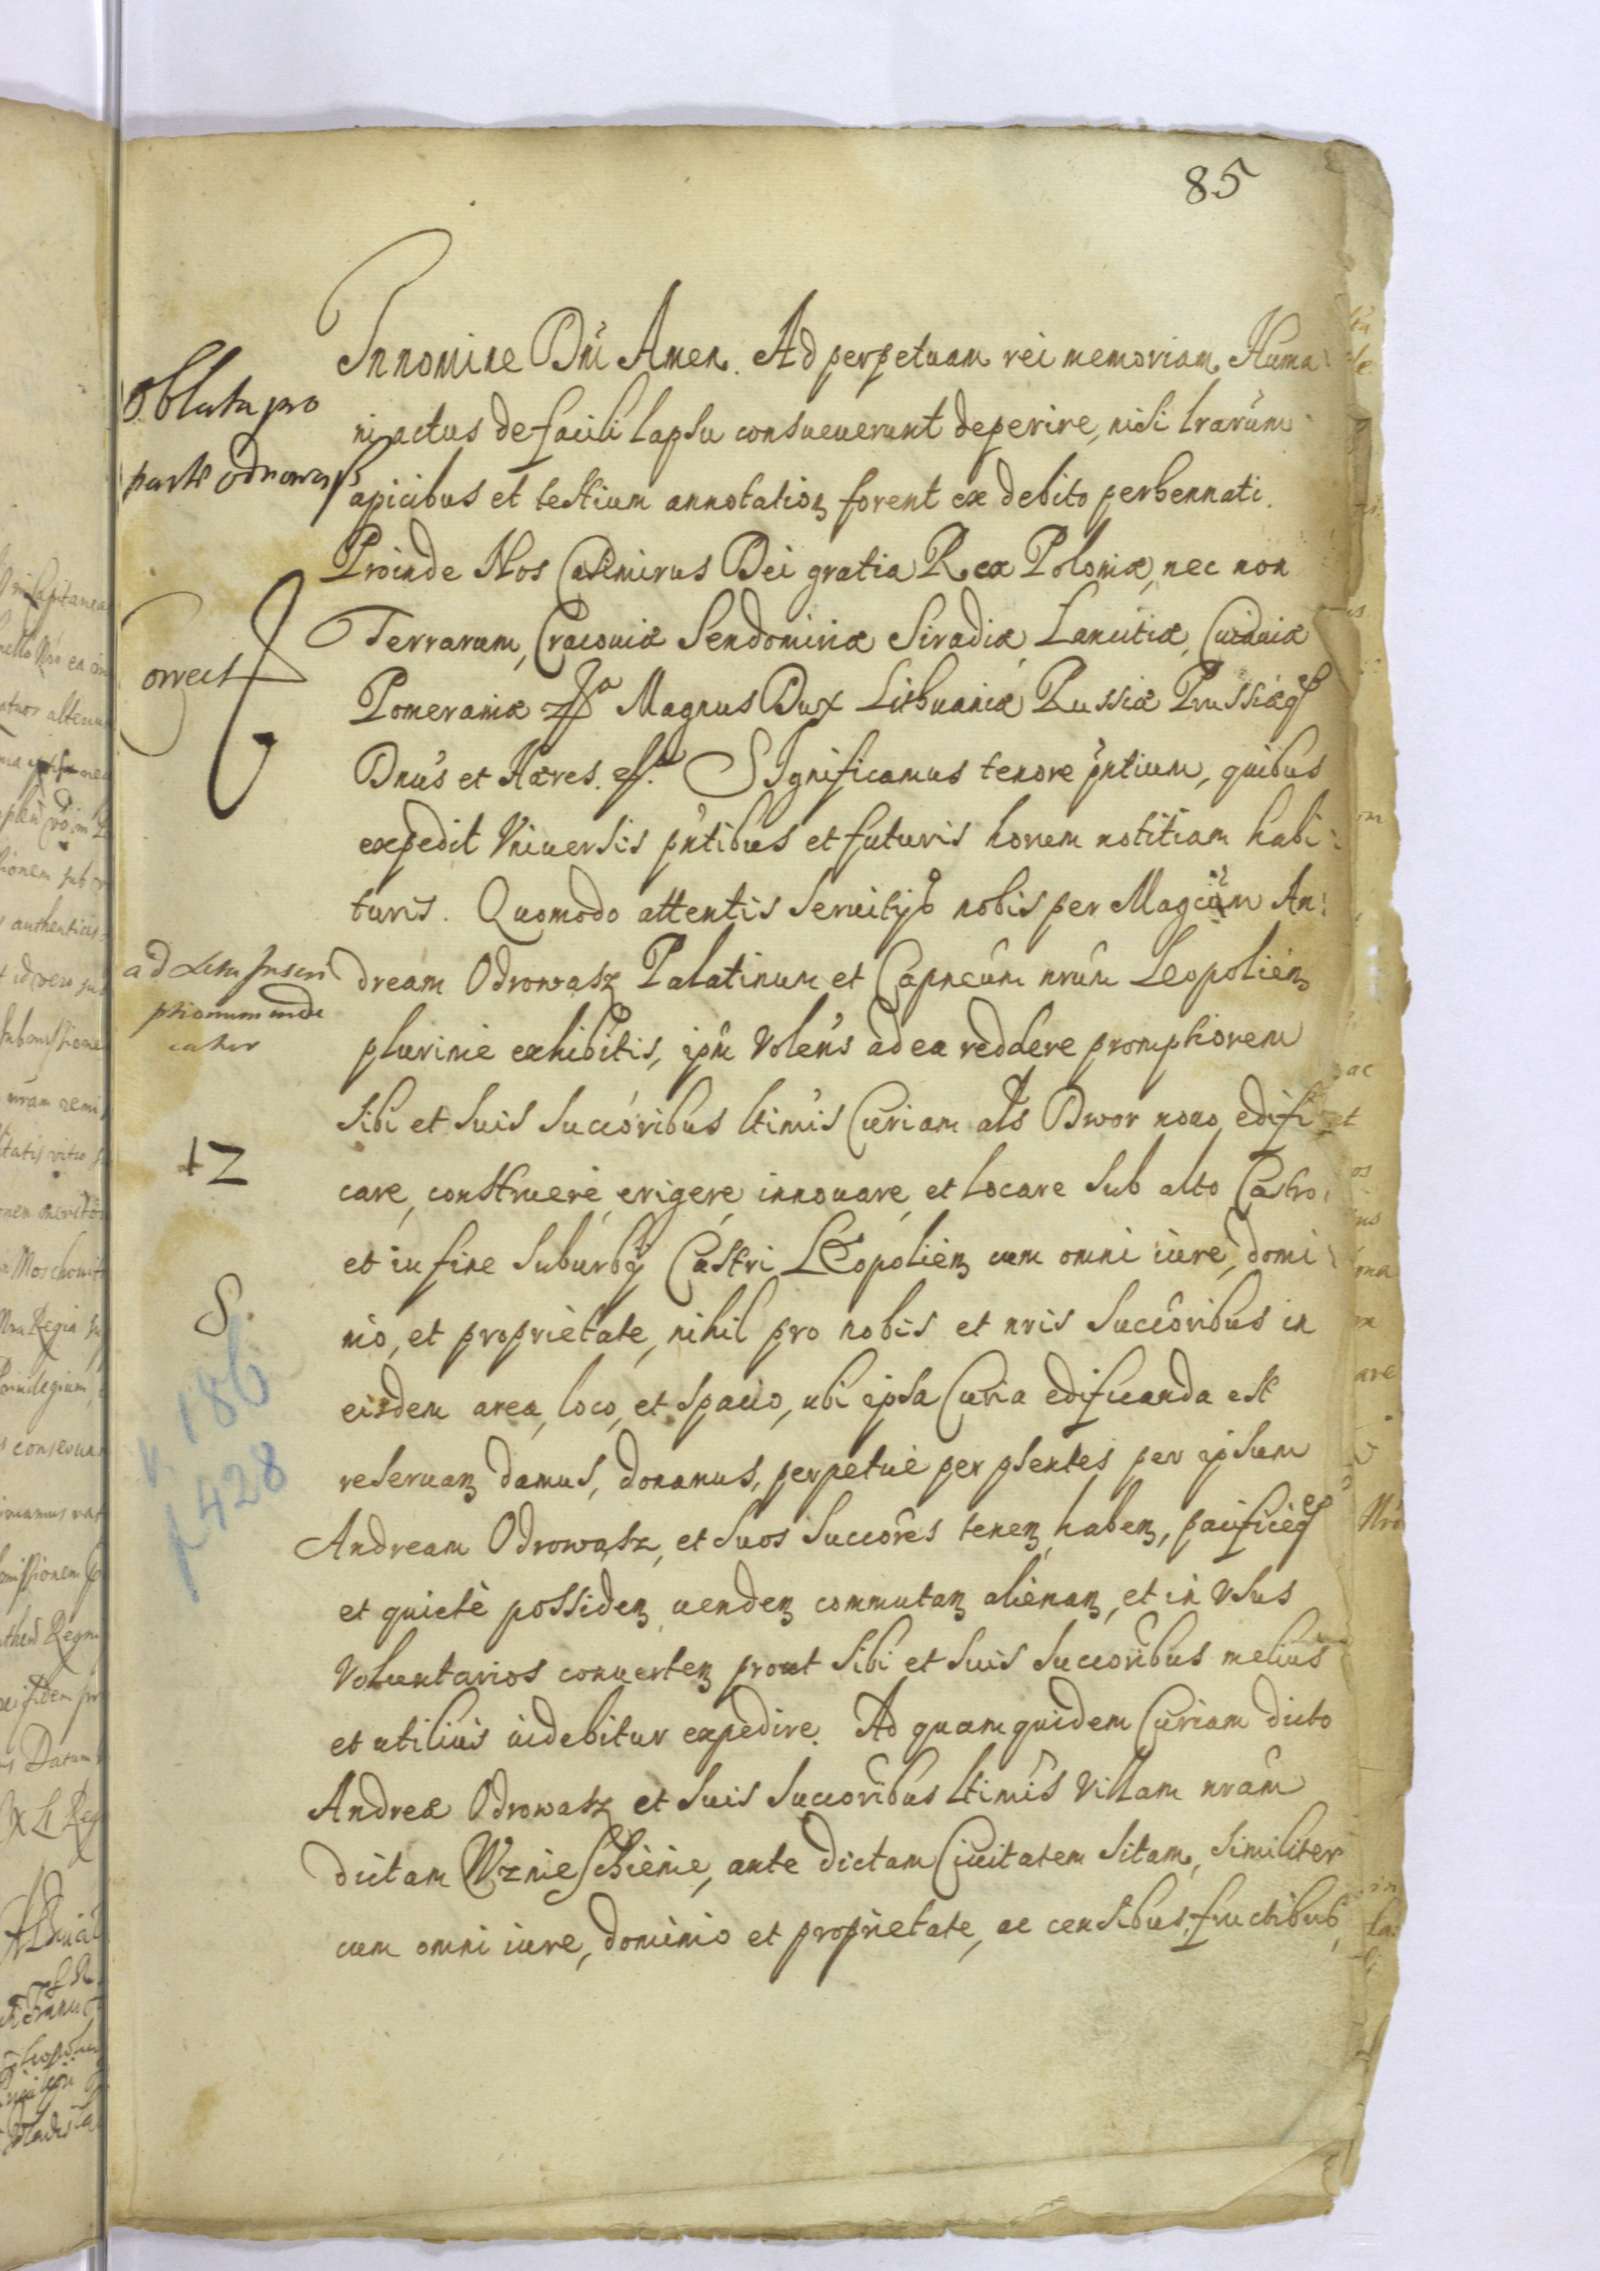 85
In nomine Dni Amen. Ad perpetuam rei memoriam, Huma
Oblata pro
ni actus de facili lapsu consueuerunt deperire, nisi lrarum
parte Odrowasz
apicibus et testium annotatioʒ forent ex debito perhennati.
Proinde Nos Casimirus Dei gratia Rex Poloniæ, nec non
Terrarum, Cracouiæ Sendomiriæ Siradiæ Lancitiæ, Cuiauiæ
orrect
Pomeraniæ Magnus Dux Lithuaniæ Russiæ Prussiæq
Dnus et Hæres. Significamus tenore pntium, quibus
expedit Vniuersis pntibus et futuris horum notitiam habi
turis. Quomodo attentis seruitys nobis per Magcum An
ad Acta Inscri
dream Odrowasz Palatinum et Capneum nrum Leopolienʒ
ptionum inde
plurimè exhibitis, ipm Volens ad ea reddere promptiorem
sibi et suis succoribus ltimis Curiam als Dwor nouo edifi
12
care, construere, erigere, innouare, et locare sub alto Castro
et in fine suburby Castri Leopolienʒ cum omni iure, domi
S.
nio, et proprietate, nihil pro nobis et nris succoribus in
186
eisdem area, loco, et spacio, ubi ipsa Curia edificanda est
428
reseruanʒ damus, donamus, perpetuè per psentes per ipsum
Andream Odrowasz, et suos succores tenenʒ, habenʒ, pacificeq
et quietè possidenʒ uendenʒ commutanʒ alienanʒ, et in Vsus
Voluntarios conuertenʒ prout sibi et suis succoribus melius
et utilius uidebitur expedire. Ad quam quidem Curiam dicto
Andreæ Odrowasz et suis succoribus ltimis Villam nram
dictam Wznieschienie, ante dictam Ciuitatem sitam, similiter
cum omni iure, dominio et proprietate, ac censibus, fructibus,